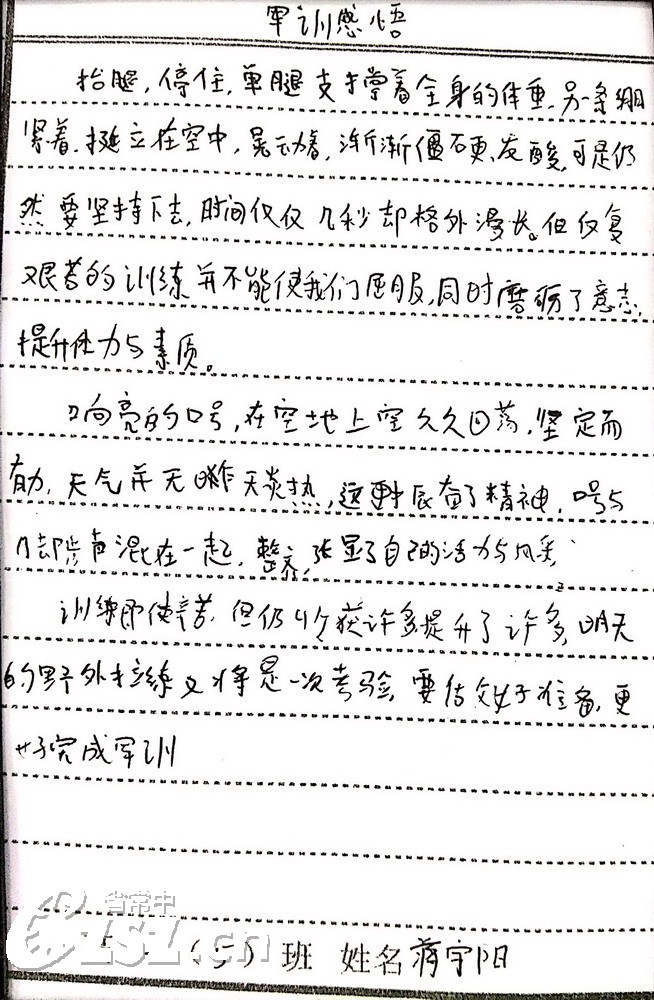 军训感悟
抬腿，停住，单腿支撑着全身的体重，另一条绷
紧着，挺立在空中，晃动着，渐渐僵硬、发酸，可是仍
然要坚持下去，时间仅仅几秒却格外漫长。但反复
艰苦的训练并不能使我们屈服，同时磨砺了意志，
提升体力与素质。
响亮的口号，在空地上空久久回荡，坚定而
有力，天气并无昨天炎热，这更振奋了精神，口号与
脚步声混在一起，整齐，张显了自己的活力与风采
训练即使辛苦，但仍收获许多提升了许多，明天
的野外拉练又将是一次考验，要做好准备，更
好完成军训
省常中
CZSLSZ.cn
（5）班 姓名 蒋宇阳